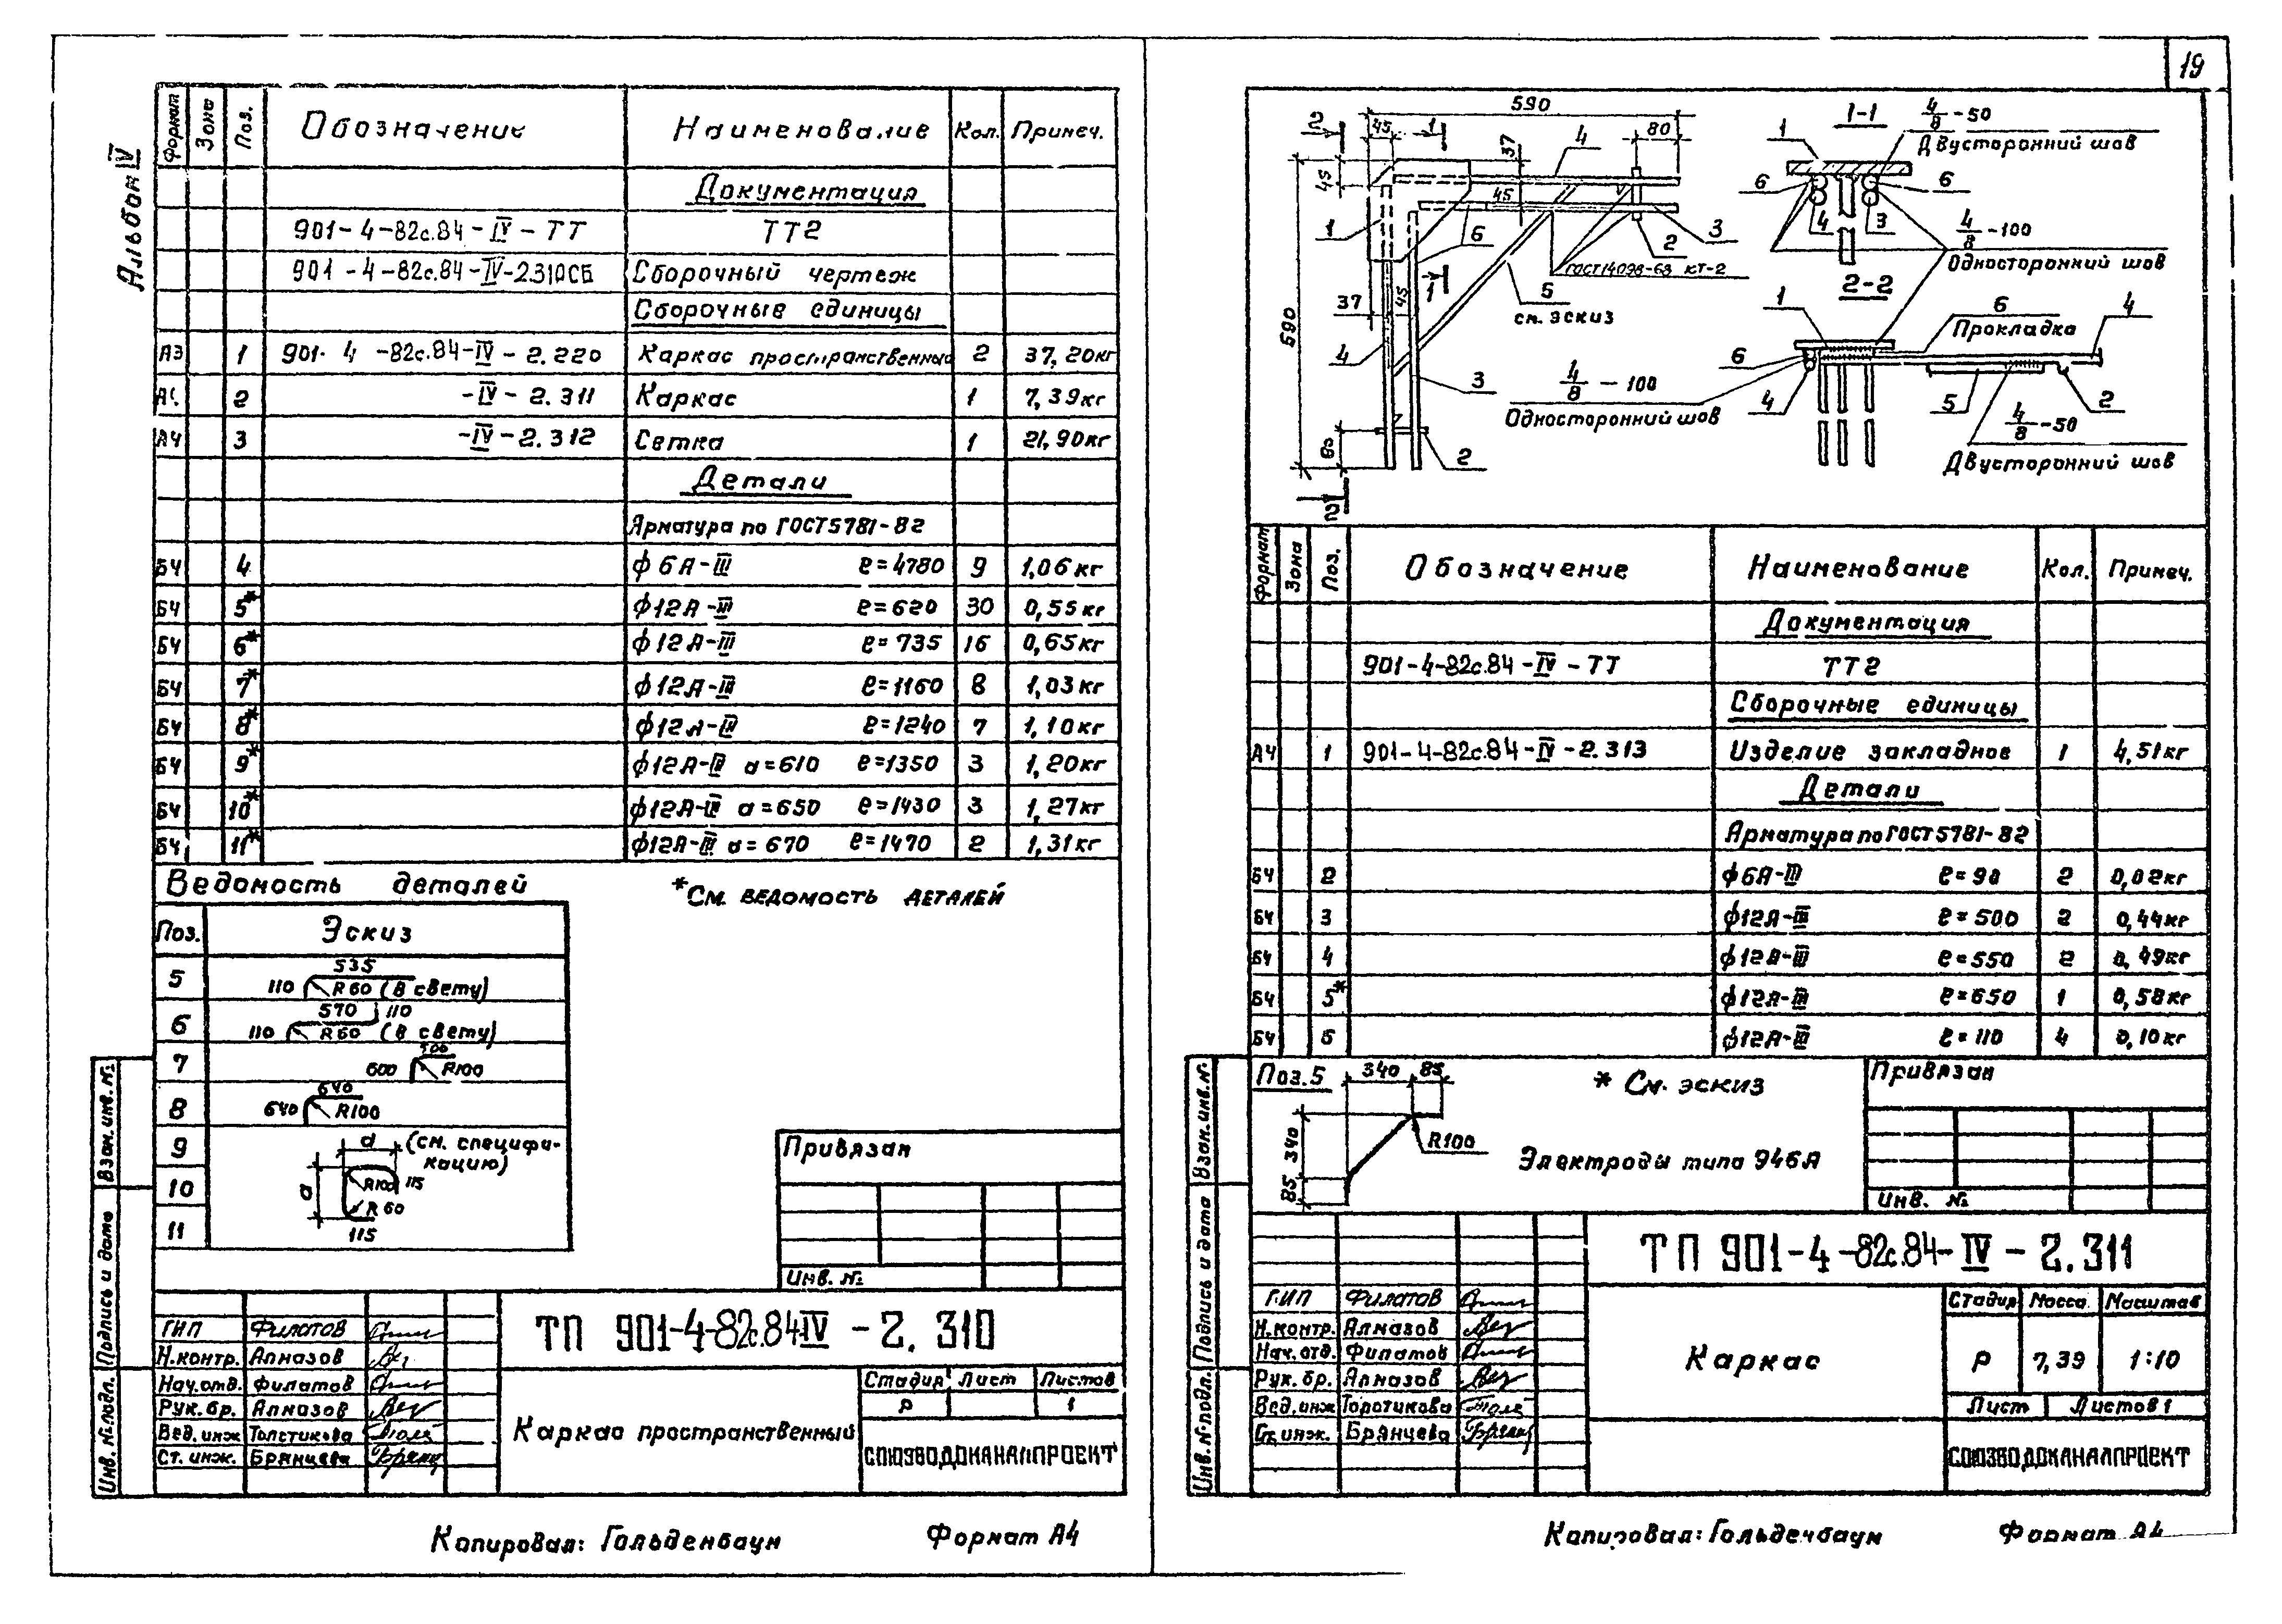 19
Альбом IV
Формат Зона Поз. Обозначение Наименование Кол. Примеч.
Документация
901-4-82с.84-IV-ТТ ТТ2
901-4-82с.84-IV-2.310СБ Сборочный чертеж
Сборочные единицы
А3 1 901-4-82с.84-IV-2.220 Каркас пространственный 2 37,20кг
2 -IV-2.311 Каркас 1 7,39кг
А4 3 -IV-2.312 Сетка 1 21,90кг
Детали
Арматура по ГОСТ 5781-82
БЧ 4 ϕ6А-III ℓ=4780 9 1,06кг
БЧ 5* ϕ12А-III ℓ=620 30 0,55кг
БЧ 6* ϕ12А-III ℓ=735 16 0,65кг
БЧ 7* ϕ12А-III ℓ=1160 8 1,03кг
БЧ 8* ϕ12А-III ℓ=1240 7 1,10кг
БЧ 9* ϕ12А-III а=610 ℓ=1350 3 1,20кг
БЧ 10* ϕ12А-III а=650 ℓ=1430 3 1,27кг
БЧ 11* ϕ12А-III а=670 ℓ=1470 2 1,31кг
Ведомость деталей
*См. ведомость деталей
Поз. Эскиз
5 110 535 R60 (В свету)
6 110 570 110 R60 (В свету)
7 600 R100
8 640 640 R100
9 а (см. специфи-
кацию)
10 а R100 115
R60
11 115
Привязан
Инв. №
Взам. инв. №
Подпись и дата
Инв. № подл.
ТП 901-4-82с.84 IV - 2.310
ГИП Филатов
Н.контр. Алмазов
Нач.отд. Филатов
Рук.бр. Алмазов
Вед.инж Толстикова
Ст.инж. Брянцева
Каркас пространственный
Стадия Лист Листов
Р 1
СОЮЗВОДОКАНАЛПРОЕКТ
Копировал: Гольденбаум Формат А4
590
2 45 1 37 4 80
45
590
1 6 45 3 2
ГОСТ 14098-68 КТ-2
1
37 45
5
см. эскиз
4
3
2
2
1-1
4/8-50
Двусторонний шов
1 6 6
4 3
4/8-100
Односторонний шов
2-2
1 6 4
Прокладка
6
4/8-100
Односторонний шов
4 5 2
4/8-50
Двусторонний шов
Формат Зона Поз. Обозначение Наименование Кол. Примеч.
Документация
901-4-82с.84-IV-ТТ ТТ2
Сборочные единицы
А4 1 901-4-82с.84-IV-2.313 Изделие закладное 1 4,51кг
Детали
Арматура по ГОСТ 5781-82
БЧ 2 ϕ6А-III ℓ=90 2 0,02кг
БЧ 3 ϕ12А-III ℓ=500 2 0,44кг
БЧ 4 ϕ12А-III ℓ=550 2 0,49кг
БЧ 5* ϕ12А-III ℓ=650 1 0,58кг
БЧ 6 ϕ12А-III ℓ=110 4 0,10кг
Поз.5 340 85
340
85
R100
* См. эскиз
Электроды типа Э46А
Привязан
Инв. №
Взам. инв. №
Подпись и дата
Инв. № подл.
ТП 901-4-82с.84-IV-2.311
ГИП Филатов
Н.контр. Алмазов
Нач.отд. Филатов
Рук.бр. Алмазов
Вед.инж
Ст.инж. Брянцева
Каркас
Стадия Масса Масштаб
Р 7,39 1:10
Лист Листов 1
СОЮЗВОДОКАНАЛПРОЕКТ
Копировал: Гольденбаум Формат А4